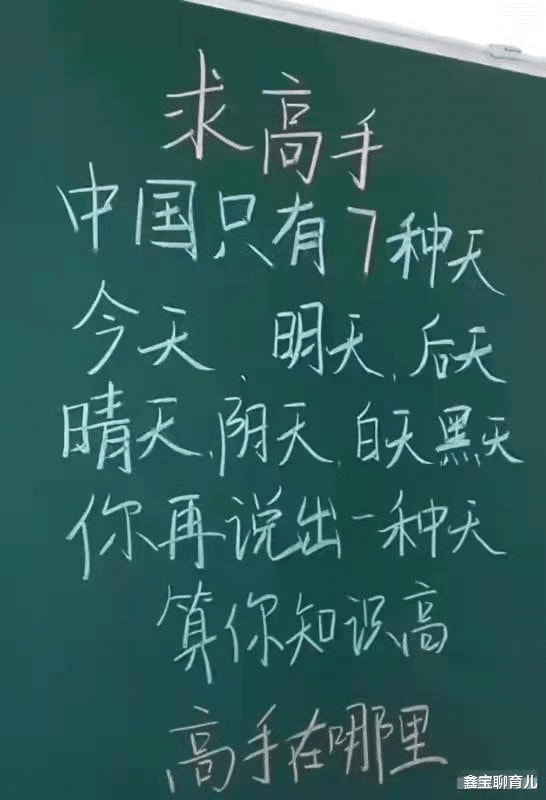 求高手
中国只有7种天
今天、明天、后天
晴天、阴天、白天黑天
你再说出一种天
算你知识高
高手在哪里
鑫宝聊育儿